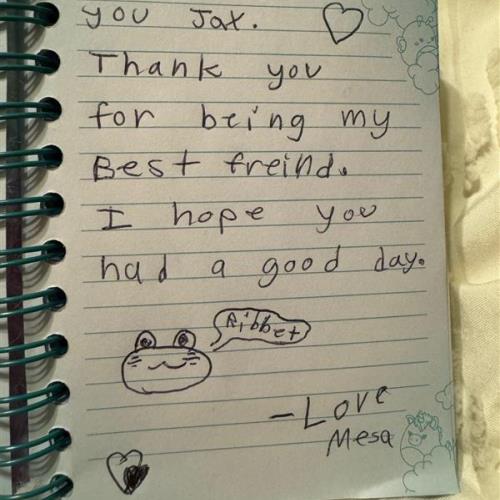 you Jax.
Thank you
for being my
Best freind.
I hope you
had a good day.
Ribbet
-Love
Mesa